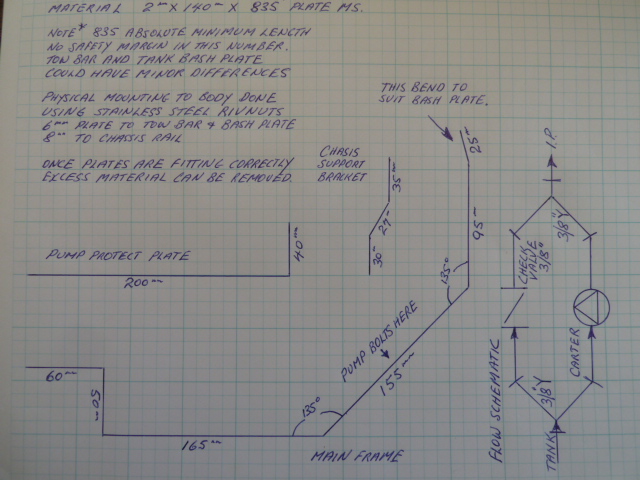 MATERIAL 2mm X 140mm X 835 PLATE MS.
NOTE* 835 ABSOLUTE MINIMUM LENGTH
NO SAFETY MARGIN IN THIS NUMBER.
TOW BAR AND TANK BASH PLATE
COULD HAVE MINOR DIFFERENCES
PHYSICAL MOUNTING TO BODY DONE
USING STAINLESS STEEL RIVNUTS
6mm PLATE TO TOW BAR & BASH PLATE
8mm TO CHASSIS RAIL
ONCE PLATES ARE FITTING CORRECTLY
EXCESS MATERIAL CAN BE REMOVED.
CHASIS
SUPPORT
BRACKET
35mm
27mm
30mm
THIS BEND TO
SUIT BASH PLATE.
25mm
95mm
135°
PUMP PROTECT PLATE
200mm
40mm
PUMP BOLTS HERE
155mm
60mm
50mm
165mm
135°
MAIN FRAME
FLOW SCHEMATIC
I.P.
3/8"Y
CHECK
VALVE
3/8"
CARTER
3/8"Y
TANK